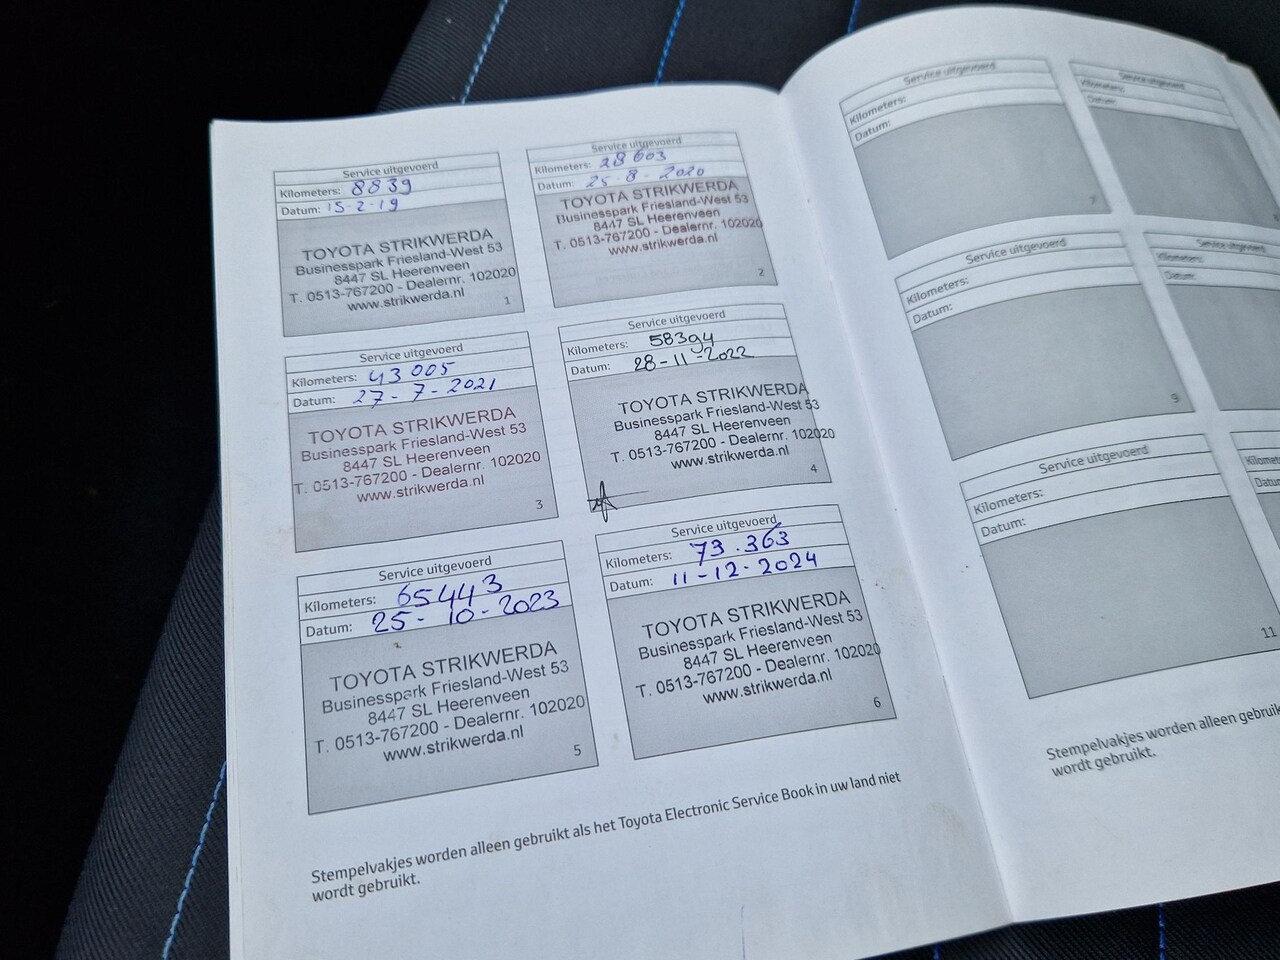 Service uitgevoerd
Kilometers: 8839
Datum: 15-2-19
TOYOTA STRIKWERDA
Businesspark Friesland-West 53
8447 SL Heerenveen
T. 0513-767200 - Dealernr. 102020
www.strikwerda.nl
1
Service uitgevoerd
Kilometers: 28603
Datum: 25-8-2020
TOYOTA STRIKWERDA
Businesspark Friesland-West 53
8447 SL Heerenveen
T. 0513-767200 - Dealernr. 102020
www.strikwerda.nl
2
Service uitgevoerd
Kilometers: 43005
Datum: 27-7-2021
TOYOTA STRIKWERDA
Businesspark Friesland-West 53
8447 SL Heerenveen
T. 0513-767200 - Dealernr. 102020
www.strikwerda.nl
3
Service uitgevoerd
Kilometers: 58394
Datum: 28-11-2022
TOYOTA STRIKWERDA
Businesspark Friesland-West 53
8447 SL Heerenveen
T. 0513-767200 - Dealernr. 102020
www.strikwerda.nl
4
Service uitgevoerd
Kilometers: 65443
Datum: 25-10-2023
TOYOTA STRIKWERDA
Businesspark Friesland-West 53
8447 SL Heerenveen
T. 0513-767200 - Dealernr. 102020
www.strikwerda.nl
5
Service uitgevoerd
Kilometers: 73.363
Datum: 11-12-2024
TOYOTA STRIKWERDA
Businesspark Friesland-West 53
8447 SL Heerenveen
T. 0513-767200 - Dealernr. 102020
www.strikwerda.nl
6
Stempelvakjes worden alleen gebruikt als het Toyota Electronic Service Book in uw land niet
wordt gebruikt.
Service uitgevoerd
Kilometers:
Datum:
7
Service uitgevoerd
Kilometers:
Datum:
Service uitgevoerd
Kilometers:
Datum:
9
Service uitgevoerd
Kilometers:
Datum:
Service uitgevoerd
Kilometers:
Datum:
11
Kilometers
Datum
Stempelvakjes worden alleen gebruik
wordt gebruikt.